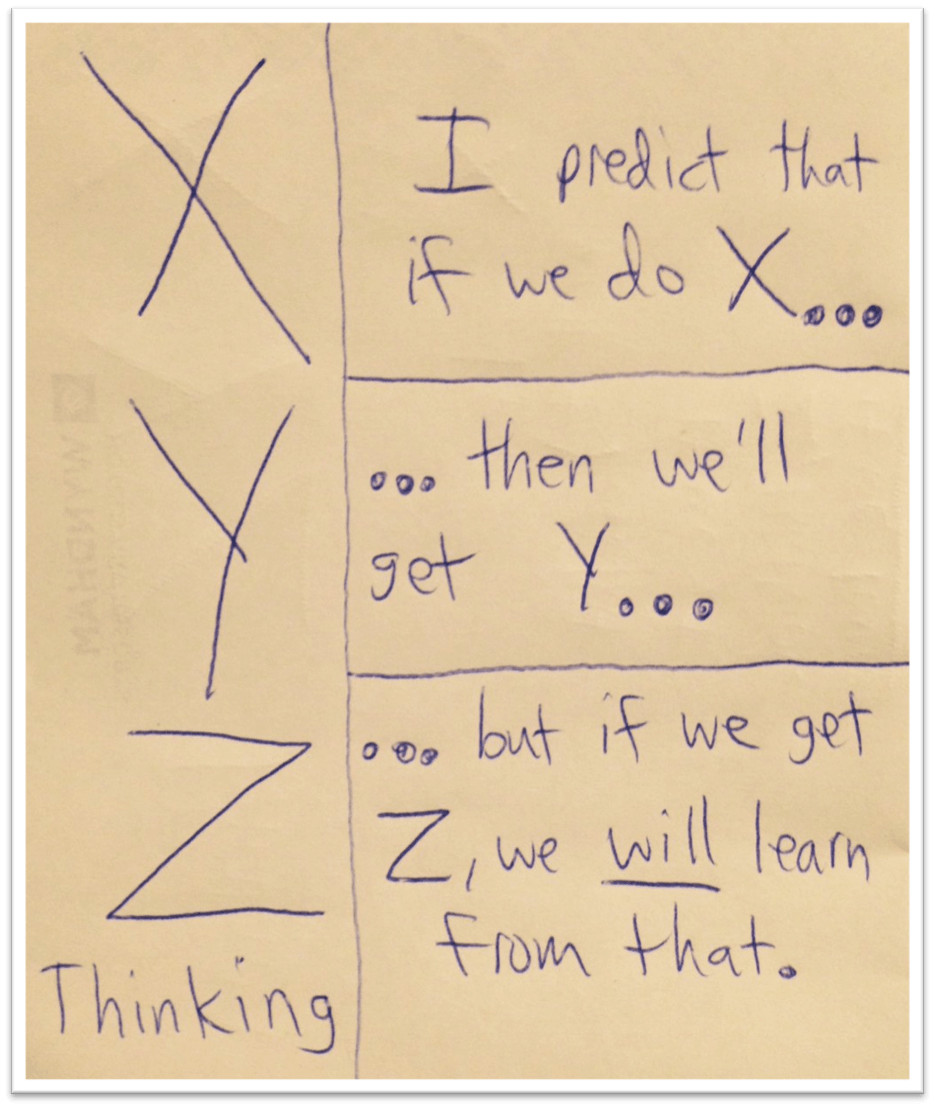 X
Y
Z
Thinking
I predict that
if we do X...
... then we'll
get Y...
... but if we get
Z, we will learn
from that.